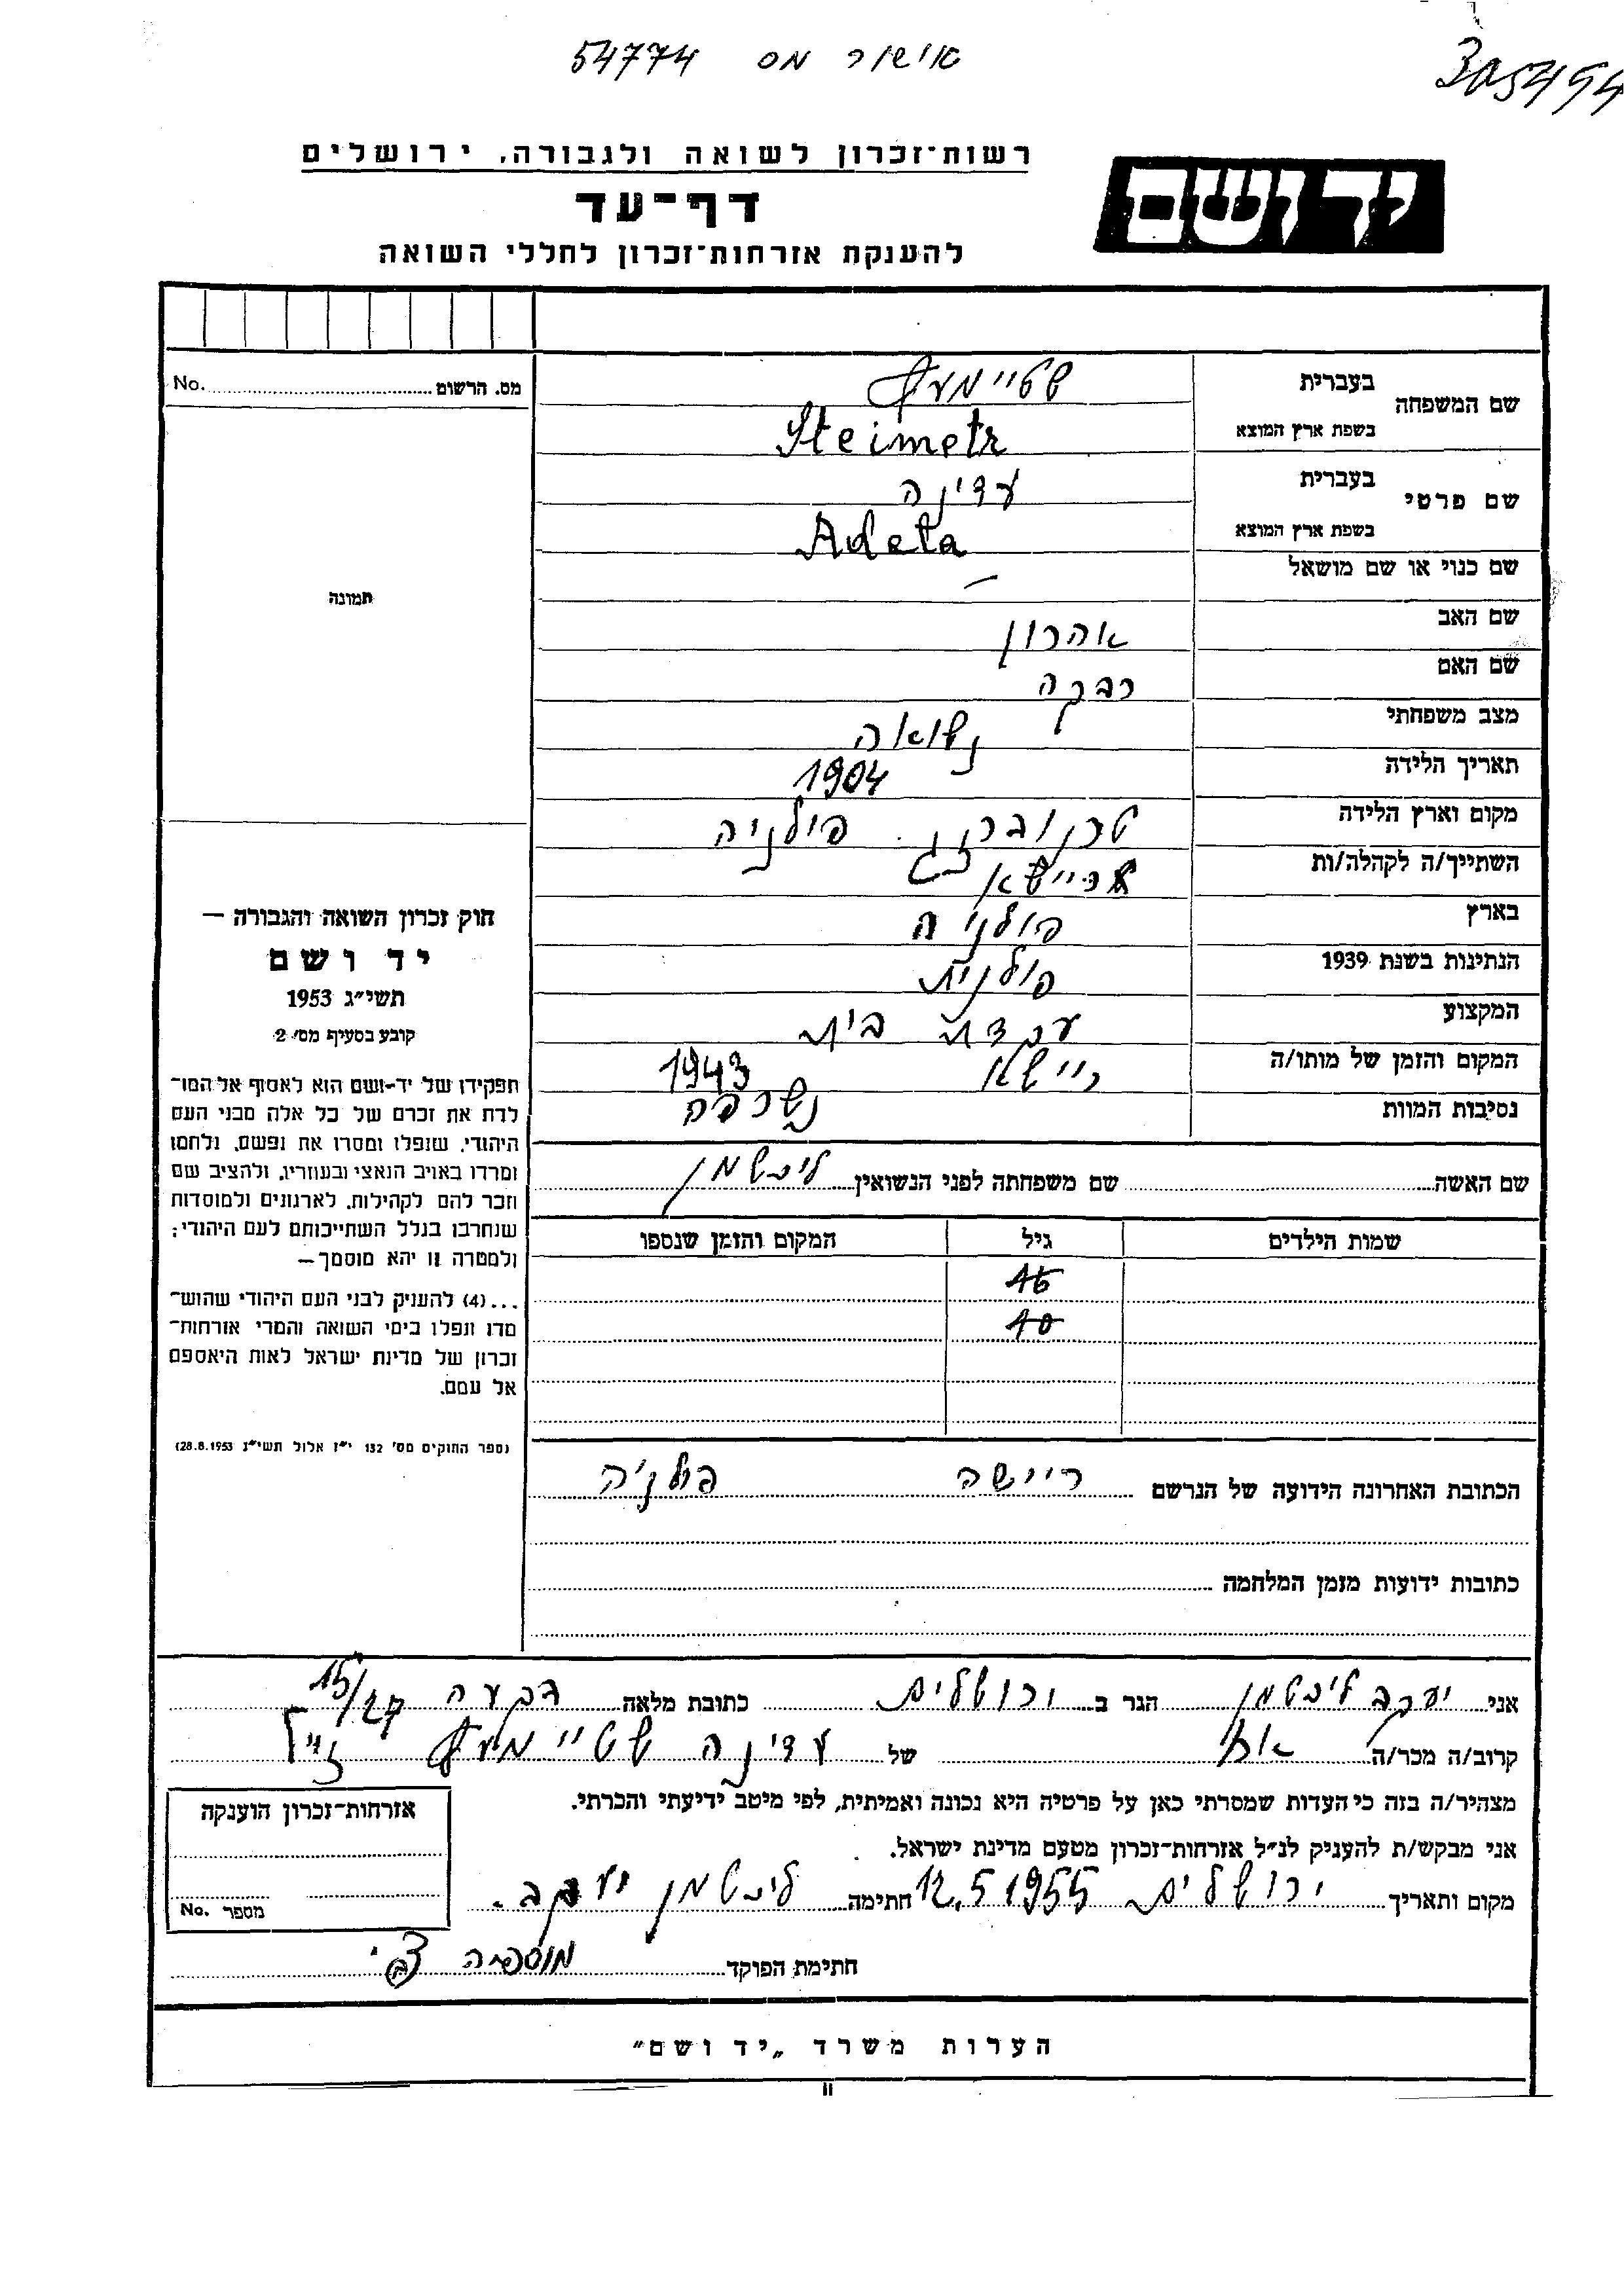 אישור מס 54774
305494
רשות־זכרון לשואה ולגבורה, ירושלים
יד ושם
דף־עד
להענקת אזרחות־זכרון לחללי השואה
מס. הרשום No.
תמונה
שם המשפחה
בעברית שטיימעץ
בשפת ארץ המוצא Steimetz
שם פרטי
בעברית עדינה
בשפת ארץ המוצא Adela
שם כנוי או שם מושאל –
שם האב אהרון
שם האם רבקה
מצב משפחתי נשואה
תאריך הלידה 1904
מקום וארץ הלידה טרנוברזג פולניה
השתייך/ה לקהלה/ות ריישא
בארץ פולניה
הנתינות בשנת 1939 פולנית
המקצוע עקרת בית
המקום והזמן של מותו/ה ריישא 1943
נסיבות המוות נשרפה
שם האשה שם משפחתה לפני הנשואין ליכטמן
שמות הילדים גיל המקום והזמן שנספו
16
10
הכתובת האחרונה הידועה של הנרשם ריישה פולניה
כתובות ידועות מזמן המלחמה
חוק זכרון השואה והגבורה —
יד ושם
תשי״ג 1953
קובע בסעיף מס׳ 2
תפקידו של יד-ושם הוא לאסוף אל המו־
לדת את זכרם של כל אלה מבני העם
היהודי, שנפלו ומסרו את נפשם, נלחמו
ומרדו באויב הנאצי ובעוזריו, ולהציב שם
וזכר להם לקהילות, לארגונים ולמוסדות
שנחרבו בגלל השתייכותם לעם היהודי;
ולמטרה זו יהא מוסמך—
...(4) להעניק לבני העם היהודי שהוש־
מדו ונפלו בימי השואה והמרי אזרחות־
זכרון של מדינת ישראל לאות היאספם
אל עמם.
(ספר החוקים מס׳ 132 י״ז אלול תשי״ג 28.8.1953)
אני יעקב ליכטמן הגר ב ירושלים כתובת מלאה בקעה 15/27
קרוב/ה מכר/ה אח של עדינה שטיימעץ ז״ל
מצהיר/ה בזה כי העדות שמסרתי כאן על פרטיה היא נכונה ואמיתית, לפי מיטב ידיעתי והכרתי.
אני מבקש/ת להעניק לנ״ל אזרחות־זכרון מטעם מדינת ישראל.
מקום ותאריך ירושלים 12.5.1955 חתימה ליכטמן יעקב.
חתימת הפוקד
אזרחות־זכרון הוענקה
מספר No.
הערות משרד „יד ושם״